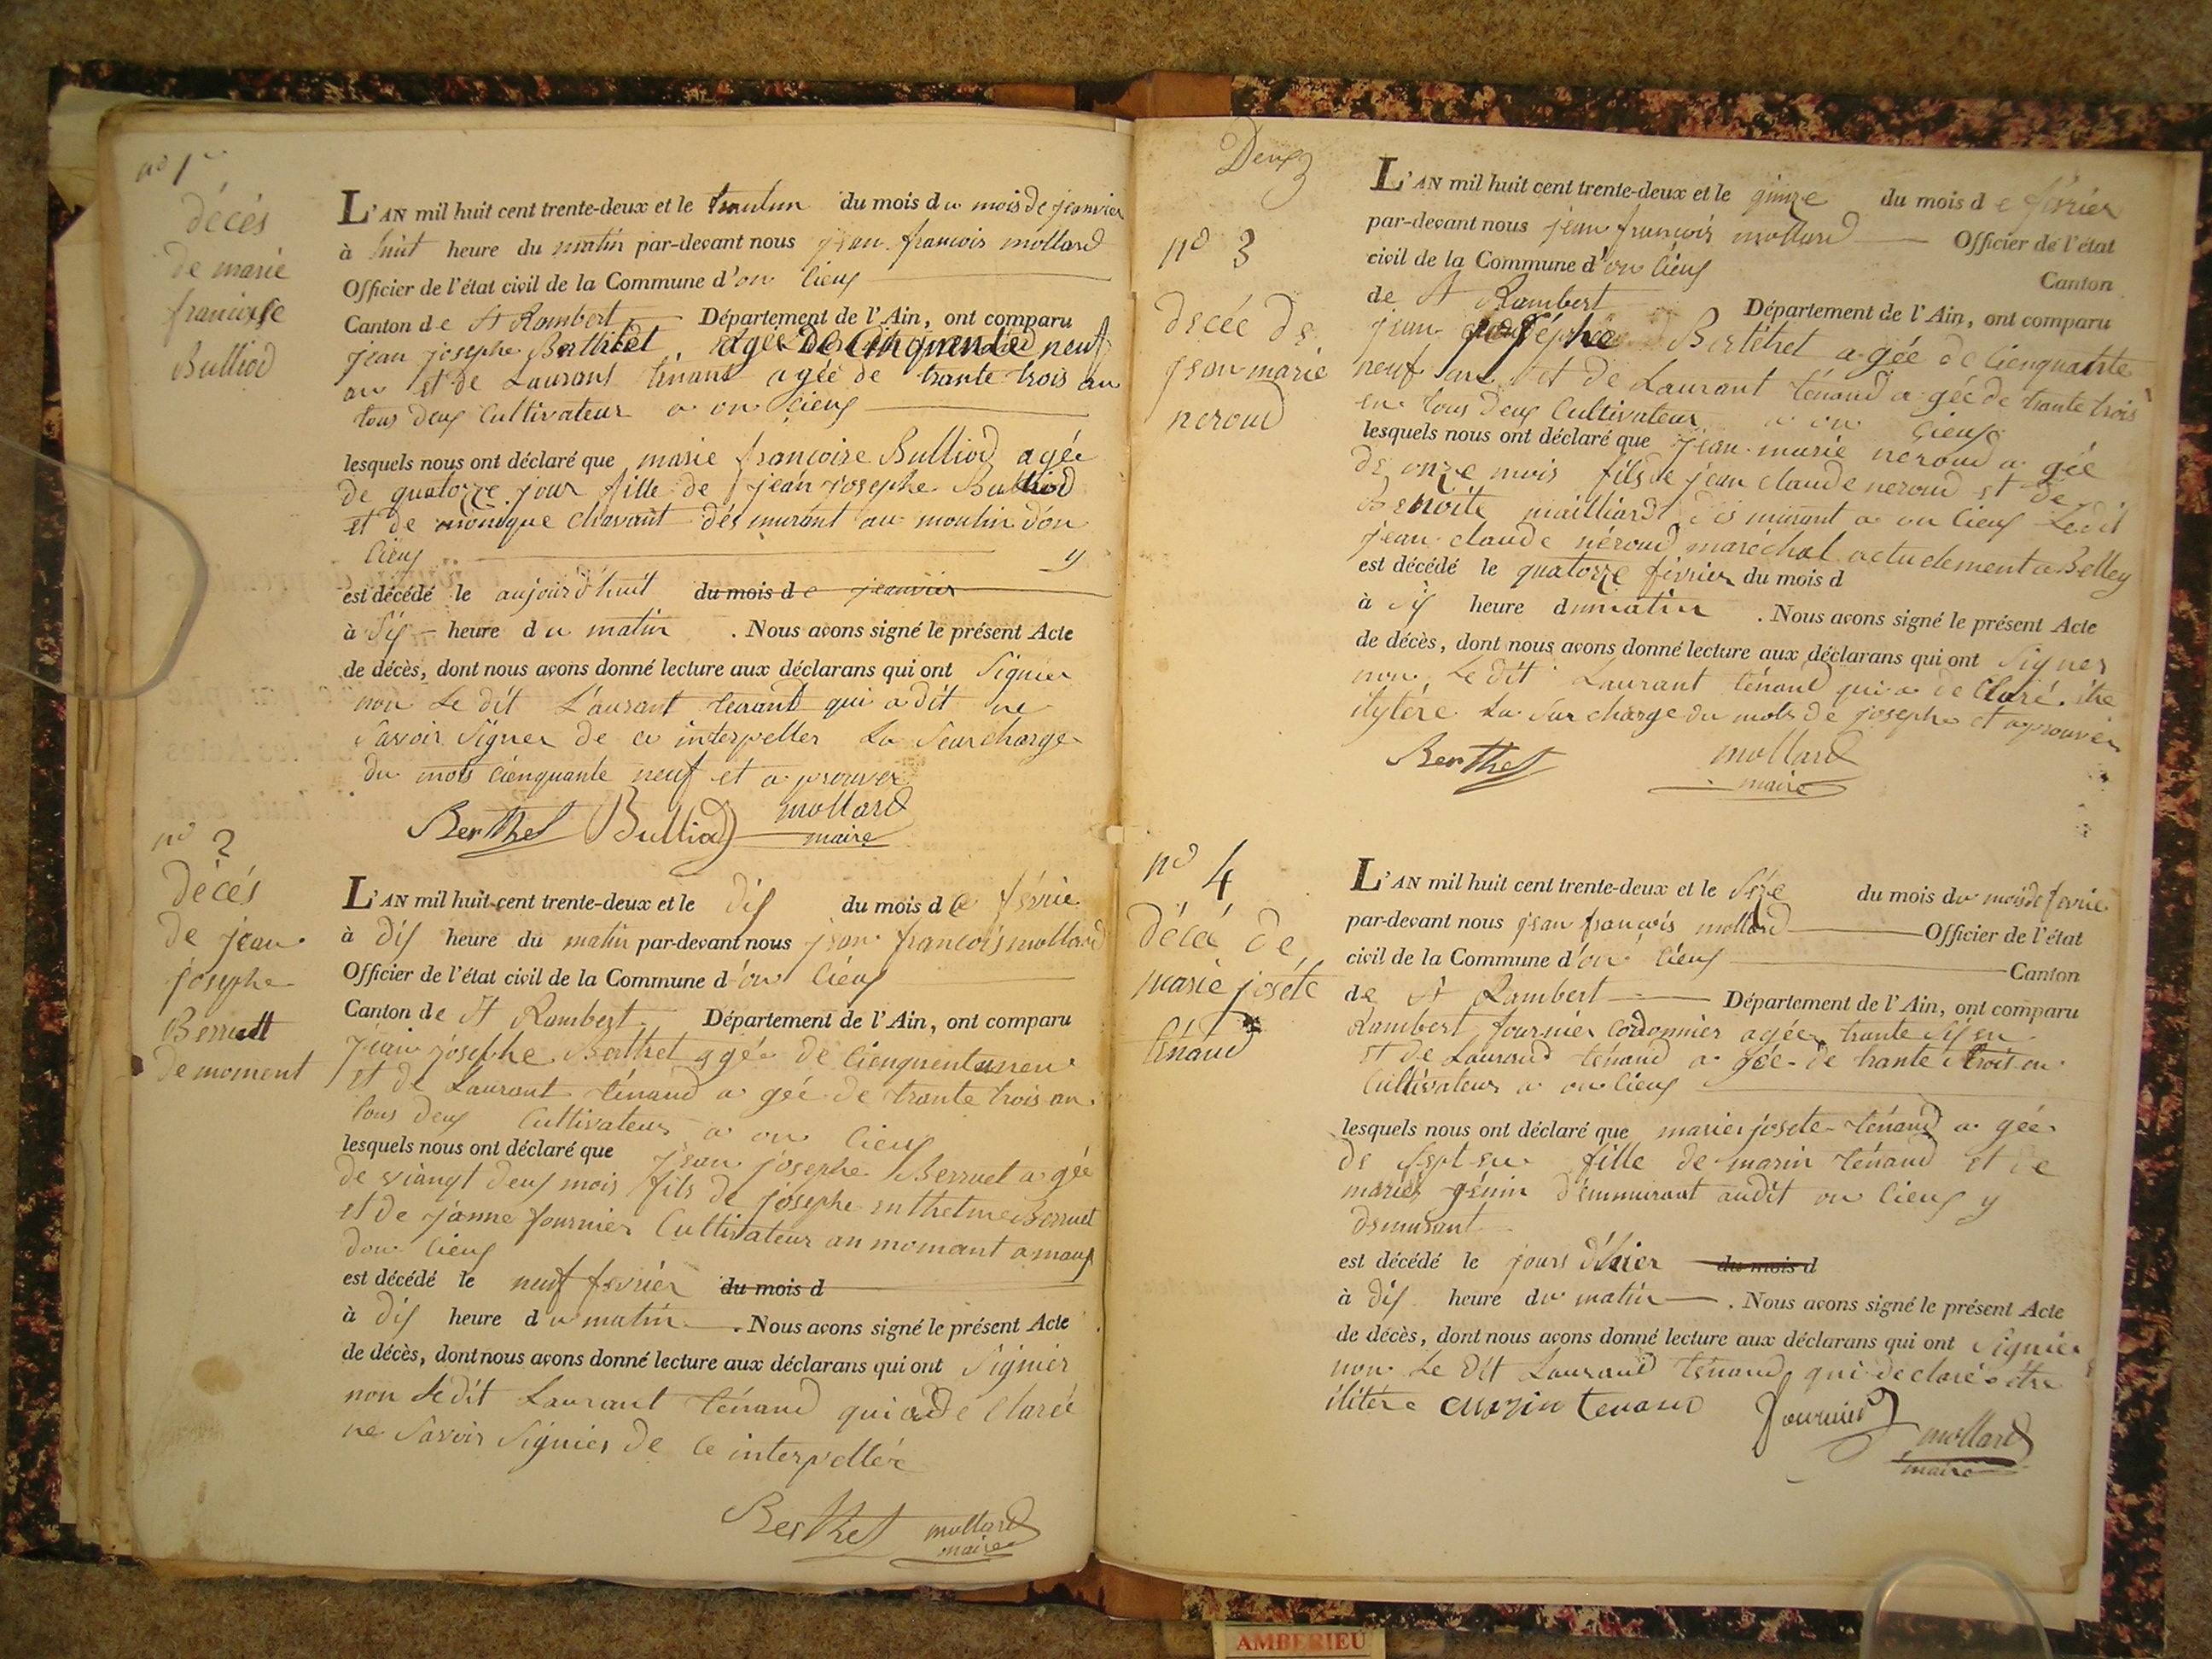 no 1
décés
de marie
francoise
Bulliod
L'AN mil huit cent trente-deux et le trentun du mois du mois de jeanvier
à huit heure du matin par-devant nous jean francois mollard
Officier de l'état civil de la Commune d'on cieux
Canton de St Rambert Département de l'Ain, ont comparu
jean josephe Berthet agée De Cinquante neuf
an et de Laurant tenant agée de trante trois an
tous deux Cultivateur a on cieux
lesquels nous ont déclaré que marie francoise Bulliod agée
de quatorze jour fille de jean josephe Bulliod
et de monique chavant désmurant au moulin don
cieux y
est décédé le aujourd'huit du mois de jeanvier
à Six heure du matin . Nous avons signé le présent Acte
de décès, dont nous avons donné lecture aux déclarans qui ont Signier
non Le dit Laurant tenant qui a dit ne
Savoir Signer de ce interpeller La Seurcharge
du mots cienquante neuf et a prouver
Berthet Bulliod mollard
maire
no 2
décés
de jean
josephe
Berruet
de moment
L'AN mil huit-cent trente-deux et le dix du mois de févrie
à dix heure du matin par-devant nous jean francois mollard
Officier de l'état civil de la Commune d'on cieux
Canton de St Rambert Département de l'Ain, ont comparu
jean josephe Berthet agée de cienquentunneu
et de Laurant ténand a gée de trante trois an
tous deux Cultivateur a on cieux
lesquels nous ont déclaré que jean josephe Berruet a gée
de viangt deux mois fils de josephe enthelme Berruet
et de janne fournier Cultivateur an momant amaux
don cieux
est décédé le neuf fevriér du mois d
à dix heure du matin . Nous avons signé le présent Acte
de décès, dont nous avons donné lecture aux déclarans qui ont Signier
non Ledit Laurant ténand qui a dé Clarée
ne Savoir Signier de ce interpellée
Berthet mollard
maire
Deux
no 3
décée de
jean marie
neroud
L'AN mil huit cent trente-deux et le quinze du mois de février
par-devant nous jean francois mollard Officier de l'état
civil de la Commune d'on cieux Canton
de St Rambert Département de l'Ain, ont comparu
jean joséphe Bertéhet agée de Cienquante
neuf ans et de Laurant ténand a gée de trante trois
en tous deux Cultivateur a on cieux
lesquels nous ont déclaré que jean marie neroud a gée
de onze mois fils de jean claude neroud et de
Benoite mailliard désmurant a on cieux Ledit
jean claude néroud maréchal actuelement a Belley
est décédé le quatorze février du mois d
à six heure dumatin . Nous avons signé le présent Acte
de décès, dont nous avons donné lecture aux déclarans qui ont Signer
non Le dit Laurant ténand qui a de Claré être
ilytére La Sur charge du mots de josephe et aprouver
Berthet mollard
maire
no 4
décéé de
marie joséte
ténand
L'AN mil huit cent trente-deux et le Séze du mois du mois de fevrie
par-devant nous jean francois mollard Officier de l'état
civil de la Commune d'on cieux Canton
de St Rambert Département de l'Ain, ont comparu
Rambert fournier Codonnier agée trante six en
et de Laurand ténand a gée de trante trois en
Cultivateur a on cieux
lesquels nous ont déclaré que marie joséte ténand a gée
de Sept en fille de marin ténand et de
marie génin démmurant audit on cieux y
demurant
est décédé le jours d'hier du mois d
à dix heure du matin . Nous avons signé le présent Acte
de décès, dont nous avons donné lecture aux déclarans qui ont Signier
non Le dit Laurand ténand qui déclaré être
ilitére marin tenand fournier
mollard
maire
AMBERIEU